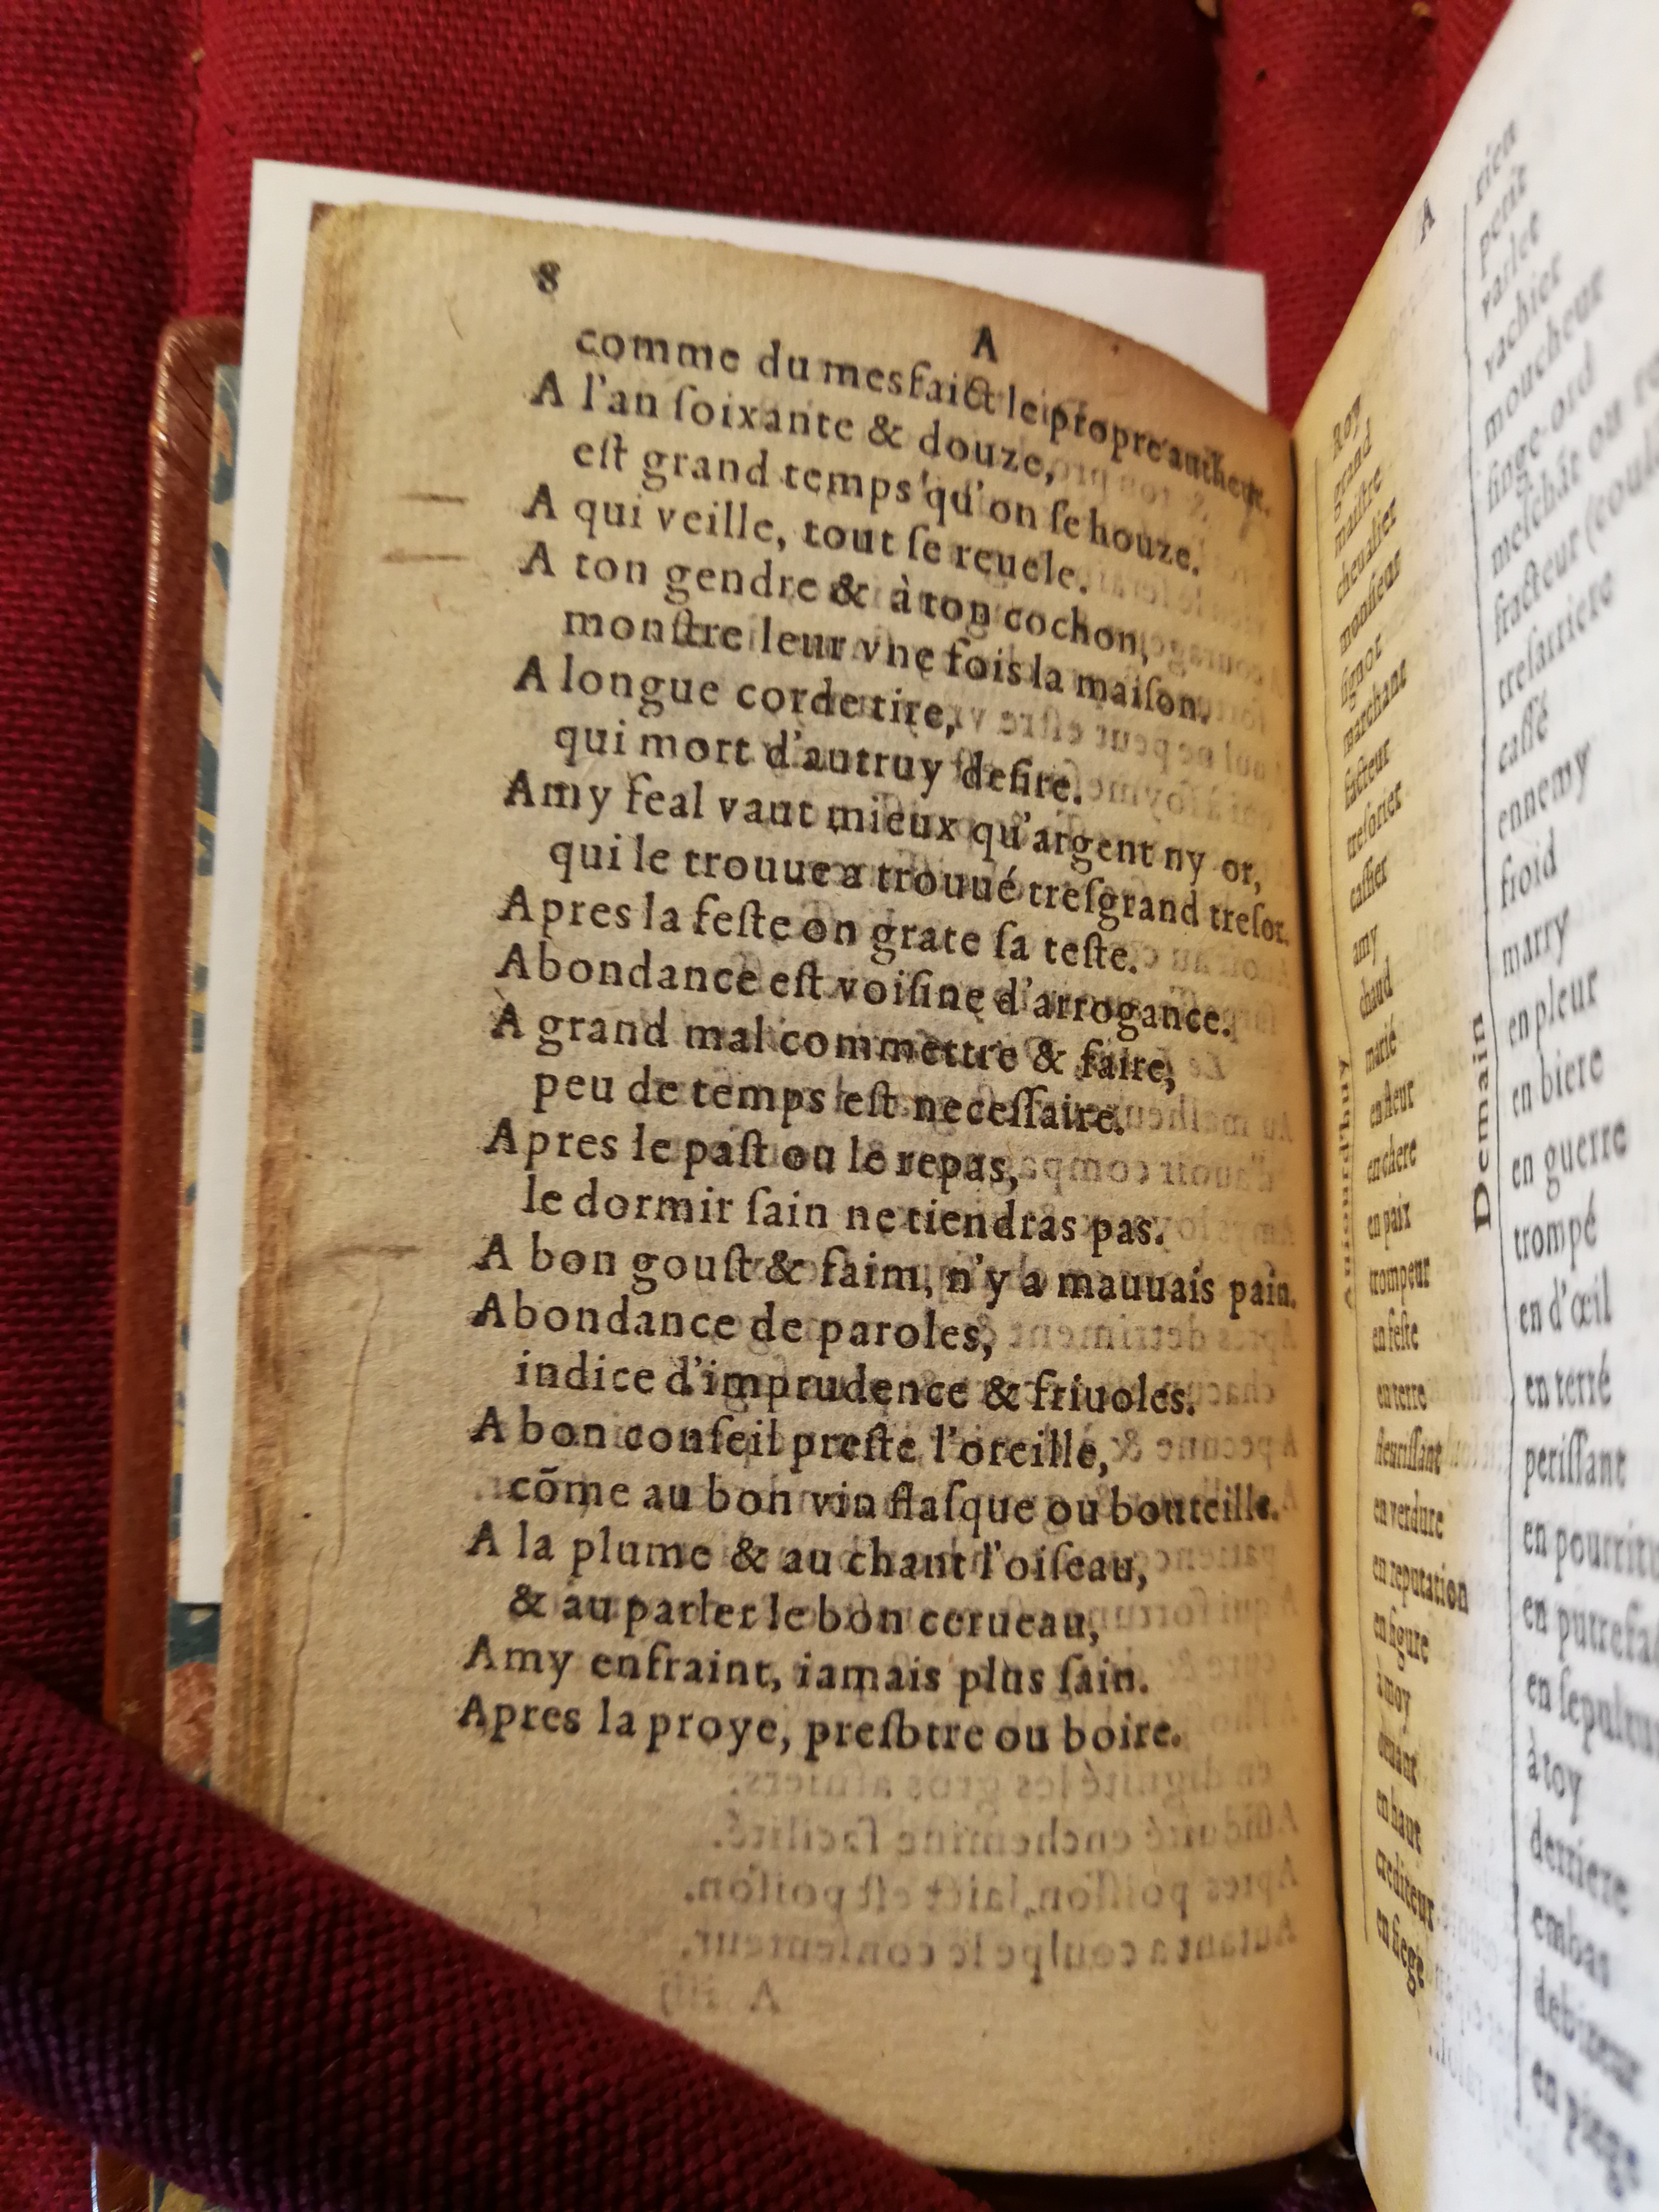 8
A
comme du mesfaict le propre autheur.
A l'an ſoixante & douze,
eſt grand temps qu'on ſe houze.
A qui veille, tout ſe reuele.
A ton gendre & à ton cochon,
monſtre leur vne fois la maiſon.
A longue corde tire,
qui mort d'autruy deſire.
Amy feal vaut mieux qu'argent ny or,
qui le trouue a trouué treſgrand treſor.
Apres la feſte on grate ſa teſte.
Abondance eſt voiſine d'arrogance.
A grand mal commettre & faire,
peu de temps eſt neceſſaire.
Apres le paſt ou le repas,
le dormir ſain ne tiendras pas.
A bon gouſt & faim, n'y a mauuais pain.
Abondance de paroles,
indice d'imprudence & friuoles.
A bon conſeil preſte l'oreille,
cõme au bon vin flaſque ou bouteille.
A la plume & au chant l'oiſeau,
& au parler le bon cerueau,
Amy enfraint, iamais plus ſain.
Apres la proye, preſbtre ou boire.
A
Aujourd'huy
Roy
grand
maiſtre
cheualier
monſieur
ſignor
marchant
facteur
treſorier
caſſier
amy
chaud
marié
en fleur
en chere
en paix
trompeur
en feſte
en terre
fleuriſſant
en verdure
en reputation
en figure
à moy
deuant
en haut
crediteur
en ſiege
Demain
rien
petit
varlet
vachier
moucheur
ſinge ord
meſchãt ou
fracteur
treſarriere
caſſé
ennemy
froid
marry
en pleur
en biere
en guerre
trompé
en d'œil
en terré
periſſant
en
en
en
à toy
derriere
embas
debiteur
en piege